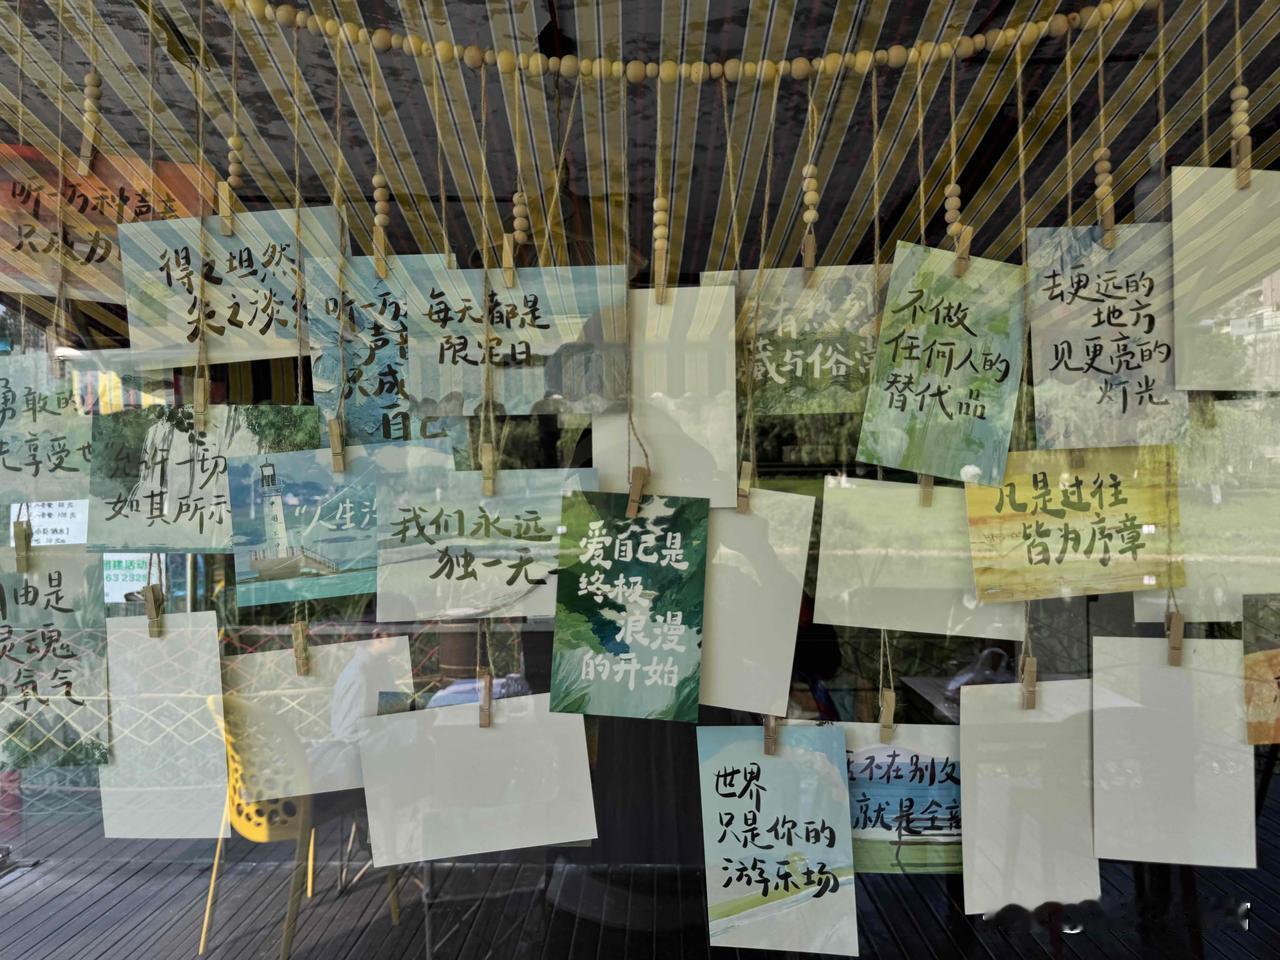 听一万种声音
只成为
得之坦然
失之淡然
听一万
声
只成
自己
每天都是
限定日
藏与俗
不做
任何人的
替代品
去更远的
地方
见更亮的
灯光
勇敢的人
先享受世
允许一切
如其所示
"人生
我们永远
独一无二
爱自己是
终极
浪漫
的开始
凡是过往
皆为序章
由是
灵魂
氧气
团建活动
世界
只是你的
游乐场
不在别处
就是全部